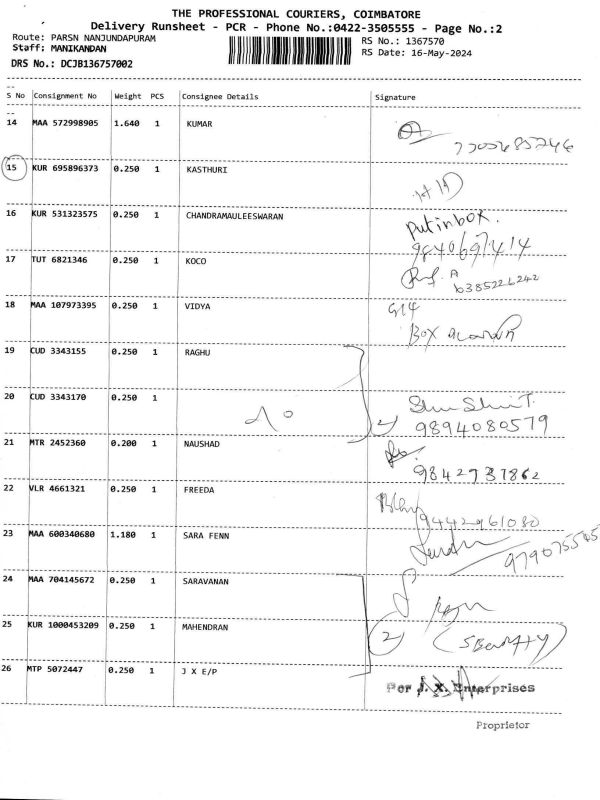 THE PROFESSIONAL COURIERS, COIMBATORE
Delivery Runsheet - PCR - Phone No.:0422-3505555 - Page No.:2
Route: PARSN NANJUNDAPURAM
Staff: MANIKANDAN
DRS No.: DCJB136757002
RS No.: 1367570
RS Date: 16-May-2024
S No Consignment No Weight PCS Consignee Details Signature
14 MAA 572998905 1.640 1 KUMAR
15 KUR 695896373 0.250 1 KASTHURI
16 KUR 531323575 0.250 1 CHANDRAMAULEESWARAN
Put in box.
9840697414
17 TUT 6821346 0.250 1 KOCO
6385226242
18 MAA 107973395 0.250 1 VIDYA
G14
Box
19 CUD 3343155 0.250 1 RAGHU
20 CUD 3343170 0.250 1
2
9894080579
21 MTR 2452360 0.200 1 NAUSHAD
9842737862
22 VLR 4661321 0.250 1 FREEDA
9442961080
23 MAA 600340680 1.180 1 SARA FENN
24 MAA 704145672 0.250 1 SARAVANAN
25 KUR 1000453209 0.250 1 MAHENDRAN
2
26 MTP 5072447 0.250 1 J X E/P
For J. X. Enterprises
Proprietor